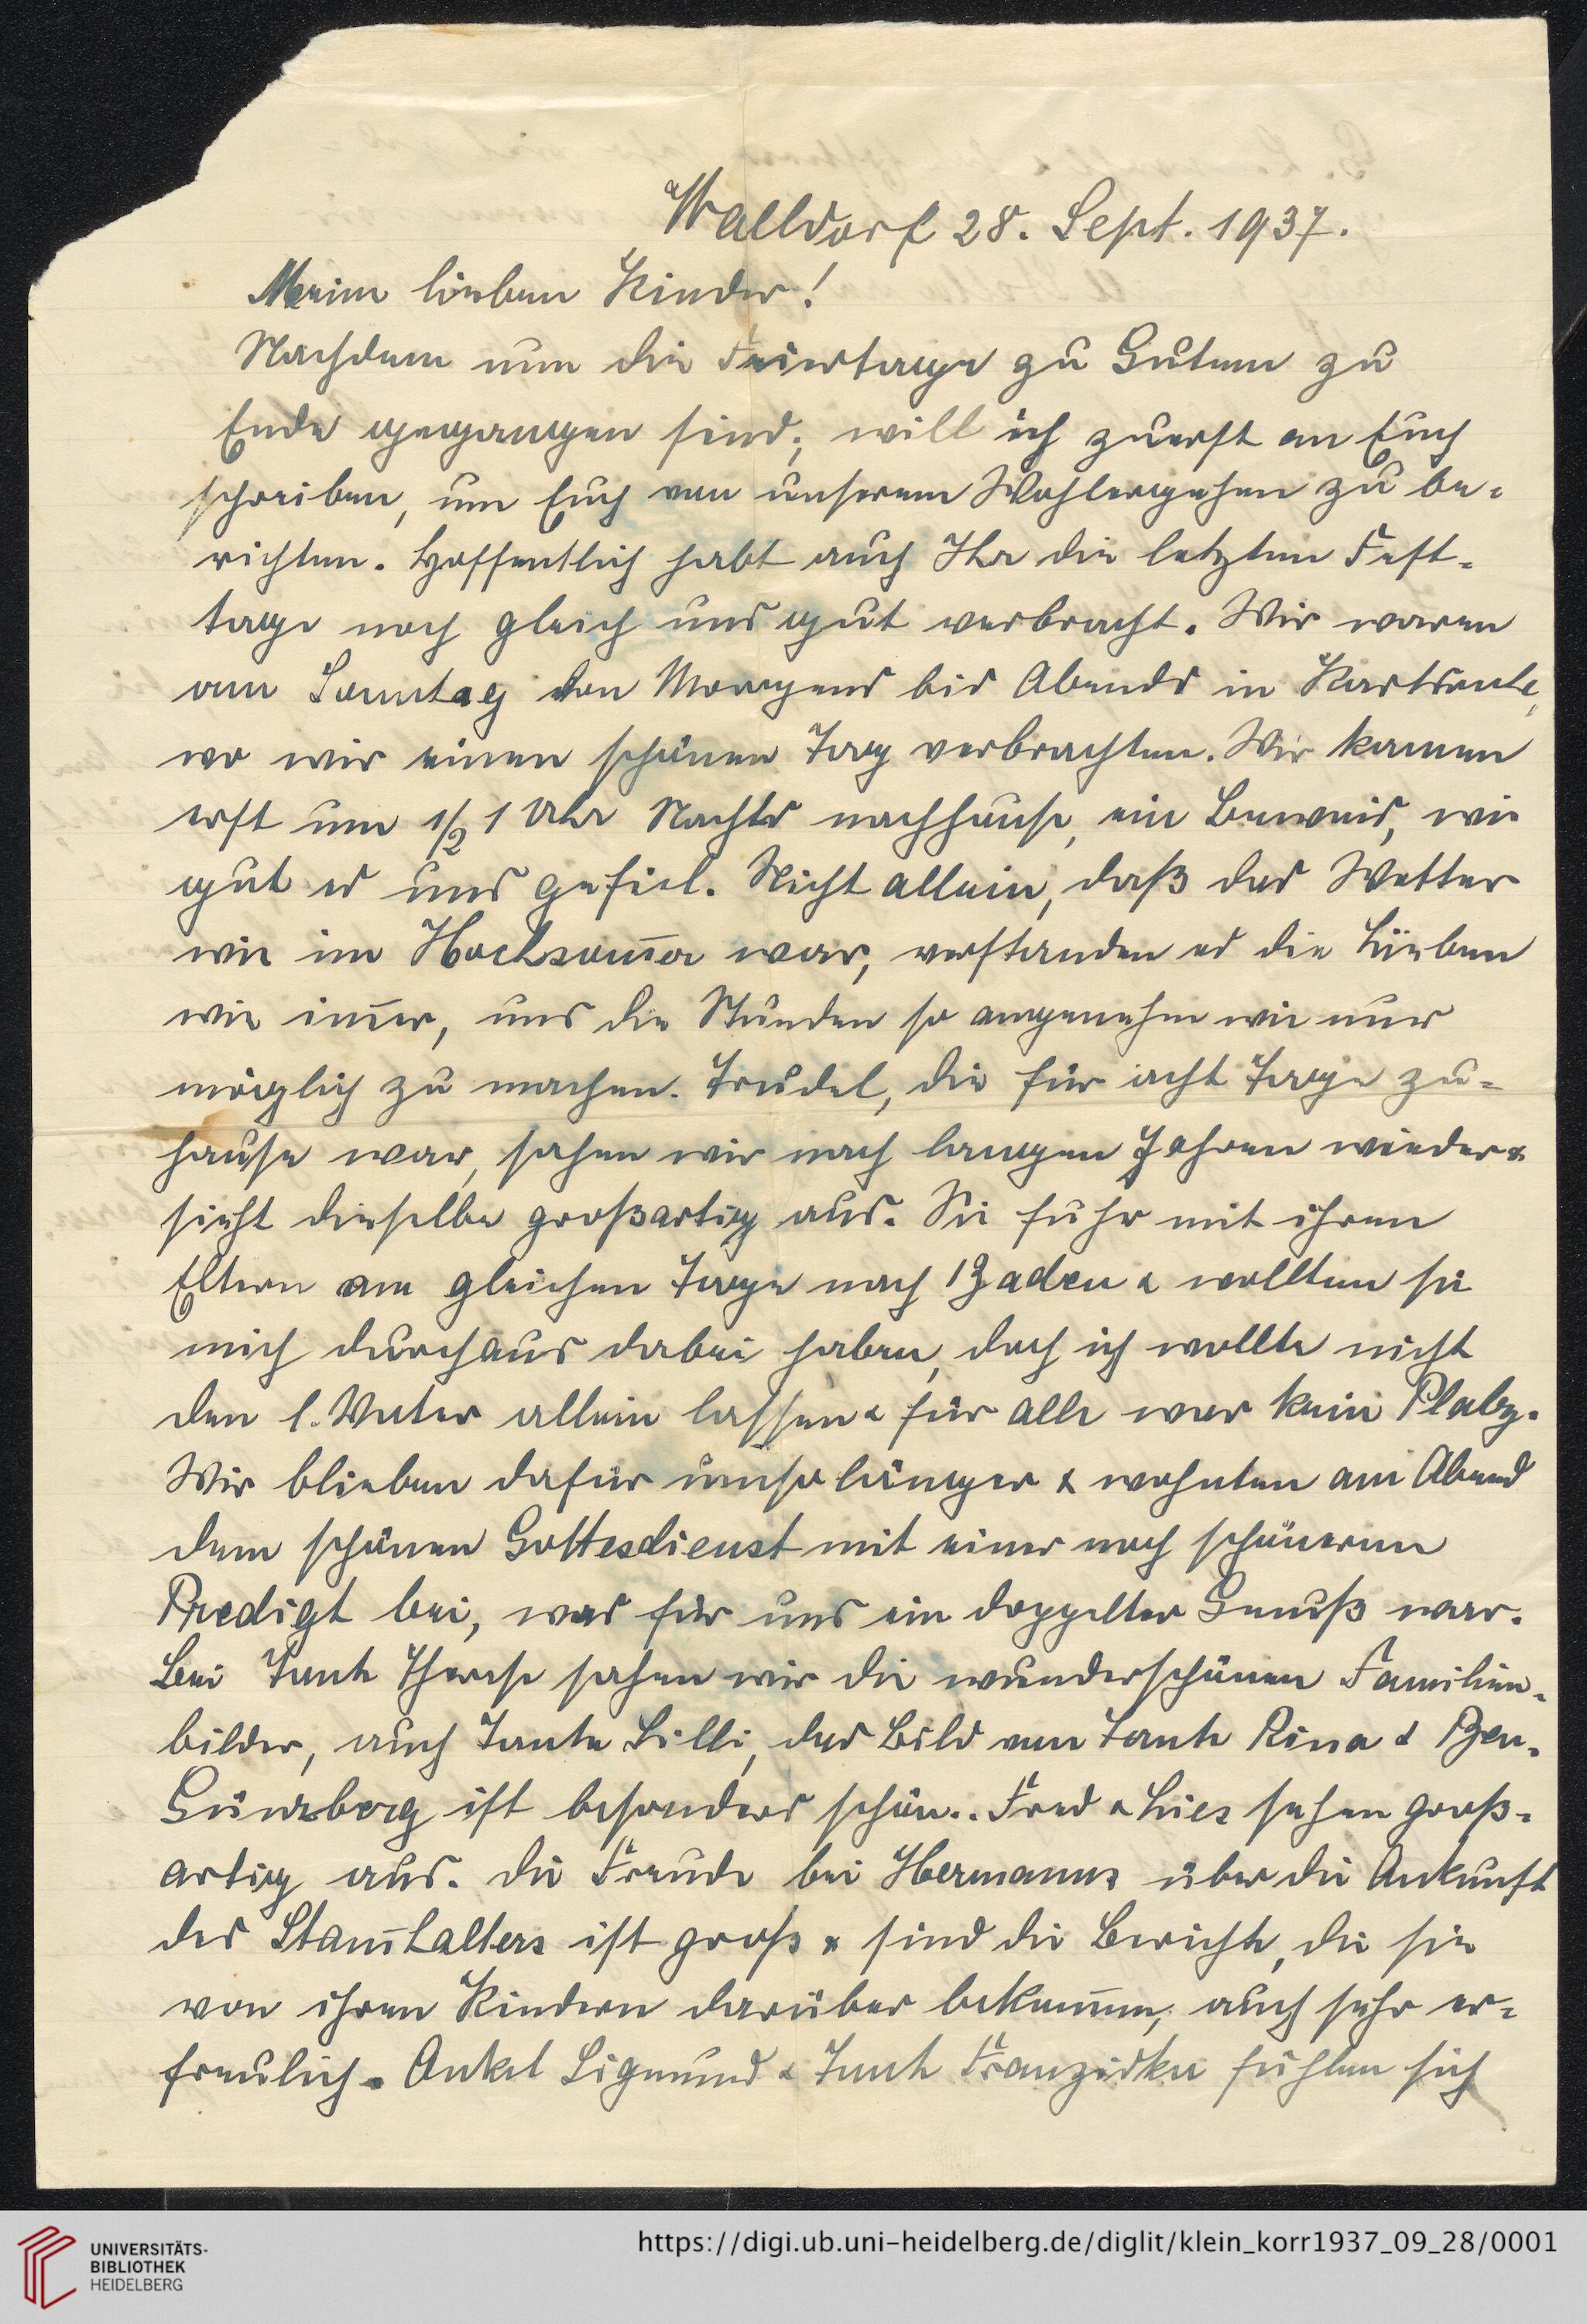 Walldorf 28. Sept. 1937.
Meine lieben Kinder!
Nachdem nun die Feiertage zu Gutem zu
Ende gegangen sind, will ich zuerst an Euch
schreiben, um Euch von unserem Wohlergehen zu be-
richten. Hoffentlich habt auch Ihr die letzten Fest-
tage noch gleich uns gut verbracht. Wir waren
am Sonntag von Morgens bis Abends in Karlsruhe,
wo wir einen schönen Tag verbrachten. Wir kamen
erst um 1/2 1 Uhr Nachts nachhause, ein Beweis, wie
gut es uns gefiel. Nicht allein, daß das Wetter
wie im Hochsom̄er war, verstanden es die Lieben
wie im̄er, uns die Stunden so angenehm wie nur
möglich zu machen. Trudel, die für acht Tage zu-
hause war, sahen wir nach langen Jahren wieder &
sieht dieselbe großartig aus. Sie fuhr mit ihren
Eltern am gleichen Tage nach Baden & wollten sie
mich durchaus dabei haben, doch ich wollte nicht
den l. Vater allein lassen & für alle war kein Platz.
Wir blieben dafür umso länger & wohnten am Abend
dem schönen Gottesdienst mit einer noch schöneren
Predigt bei, was für uns ein doppelter Genuß war.
Bei Tante Therese sahen wir die wunderschönen Familien-
bilder, auch Tante Lilli, das Bild von Tante Rina &
Günzberg ist besonders schön.. Fred & Lies sehen groß-
artig aus. Die Freude bei Hermanns über die Ankunft
des Stam̄halters ist groß & sind die Berichte, die sie
von ihren Kindern darüber bekom̄en, auch sehr er-
freulich. Onkel Sigmund & Tante Franziska fühlen sich
UNIVERSITÄTS-
BIBLIOTHEK
HEIDELBERG
https://digi.ub.uni-heidelberg.de/diglit/klein_korr1937_09_28/0001